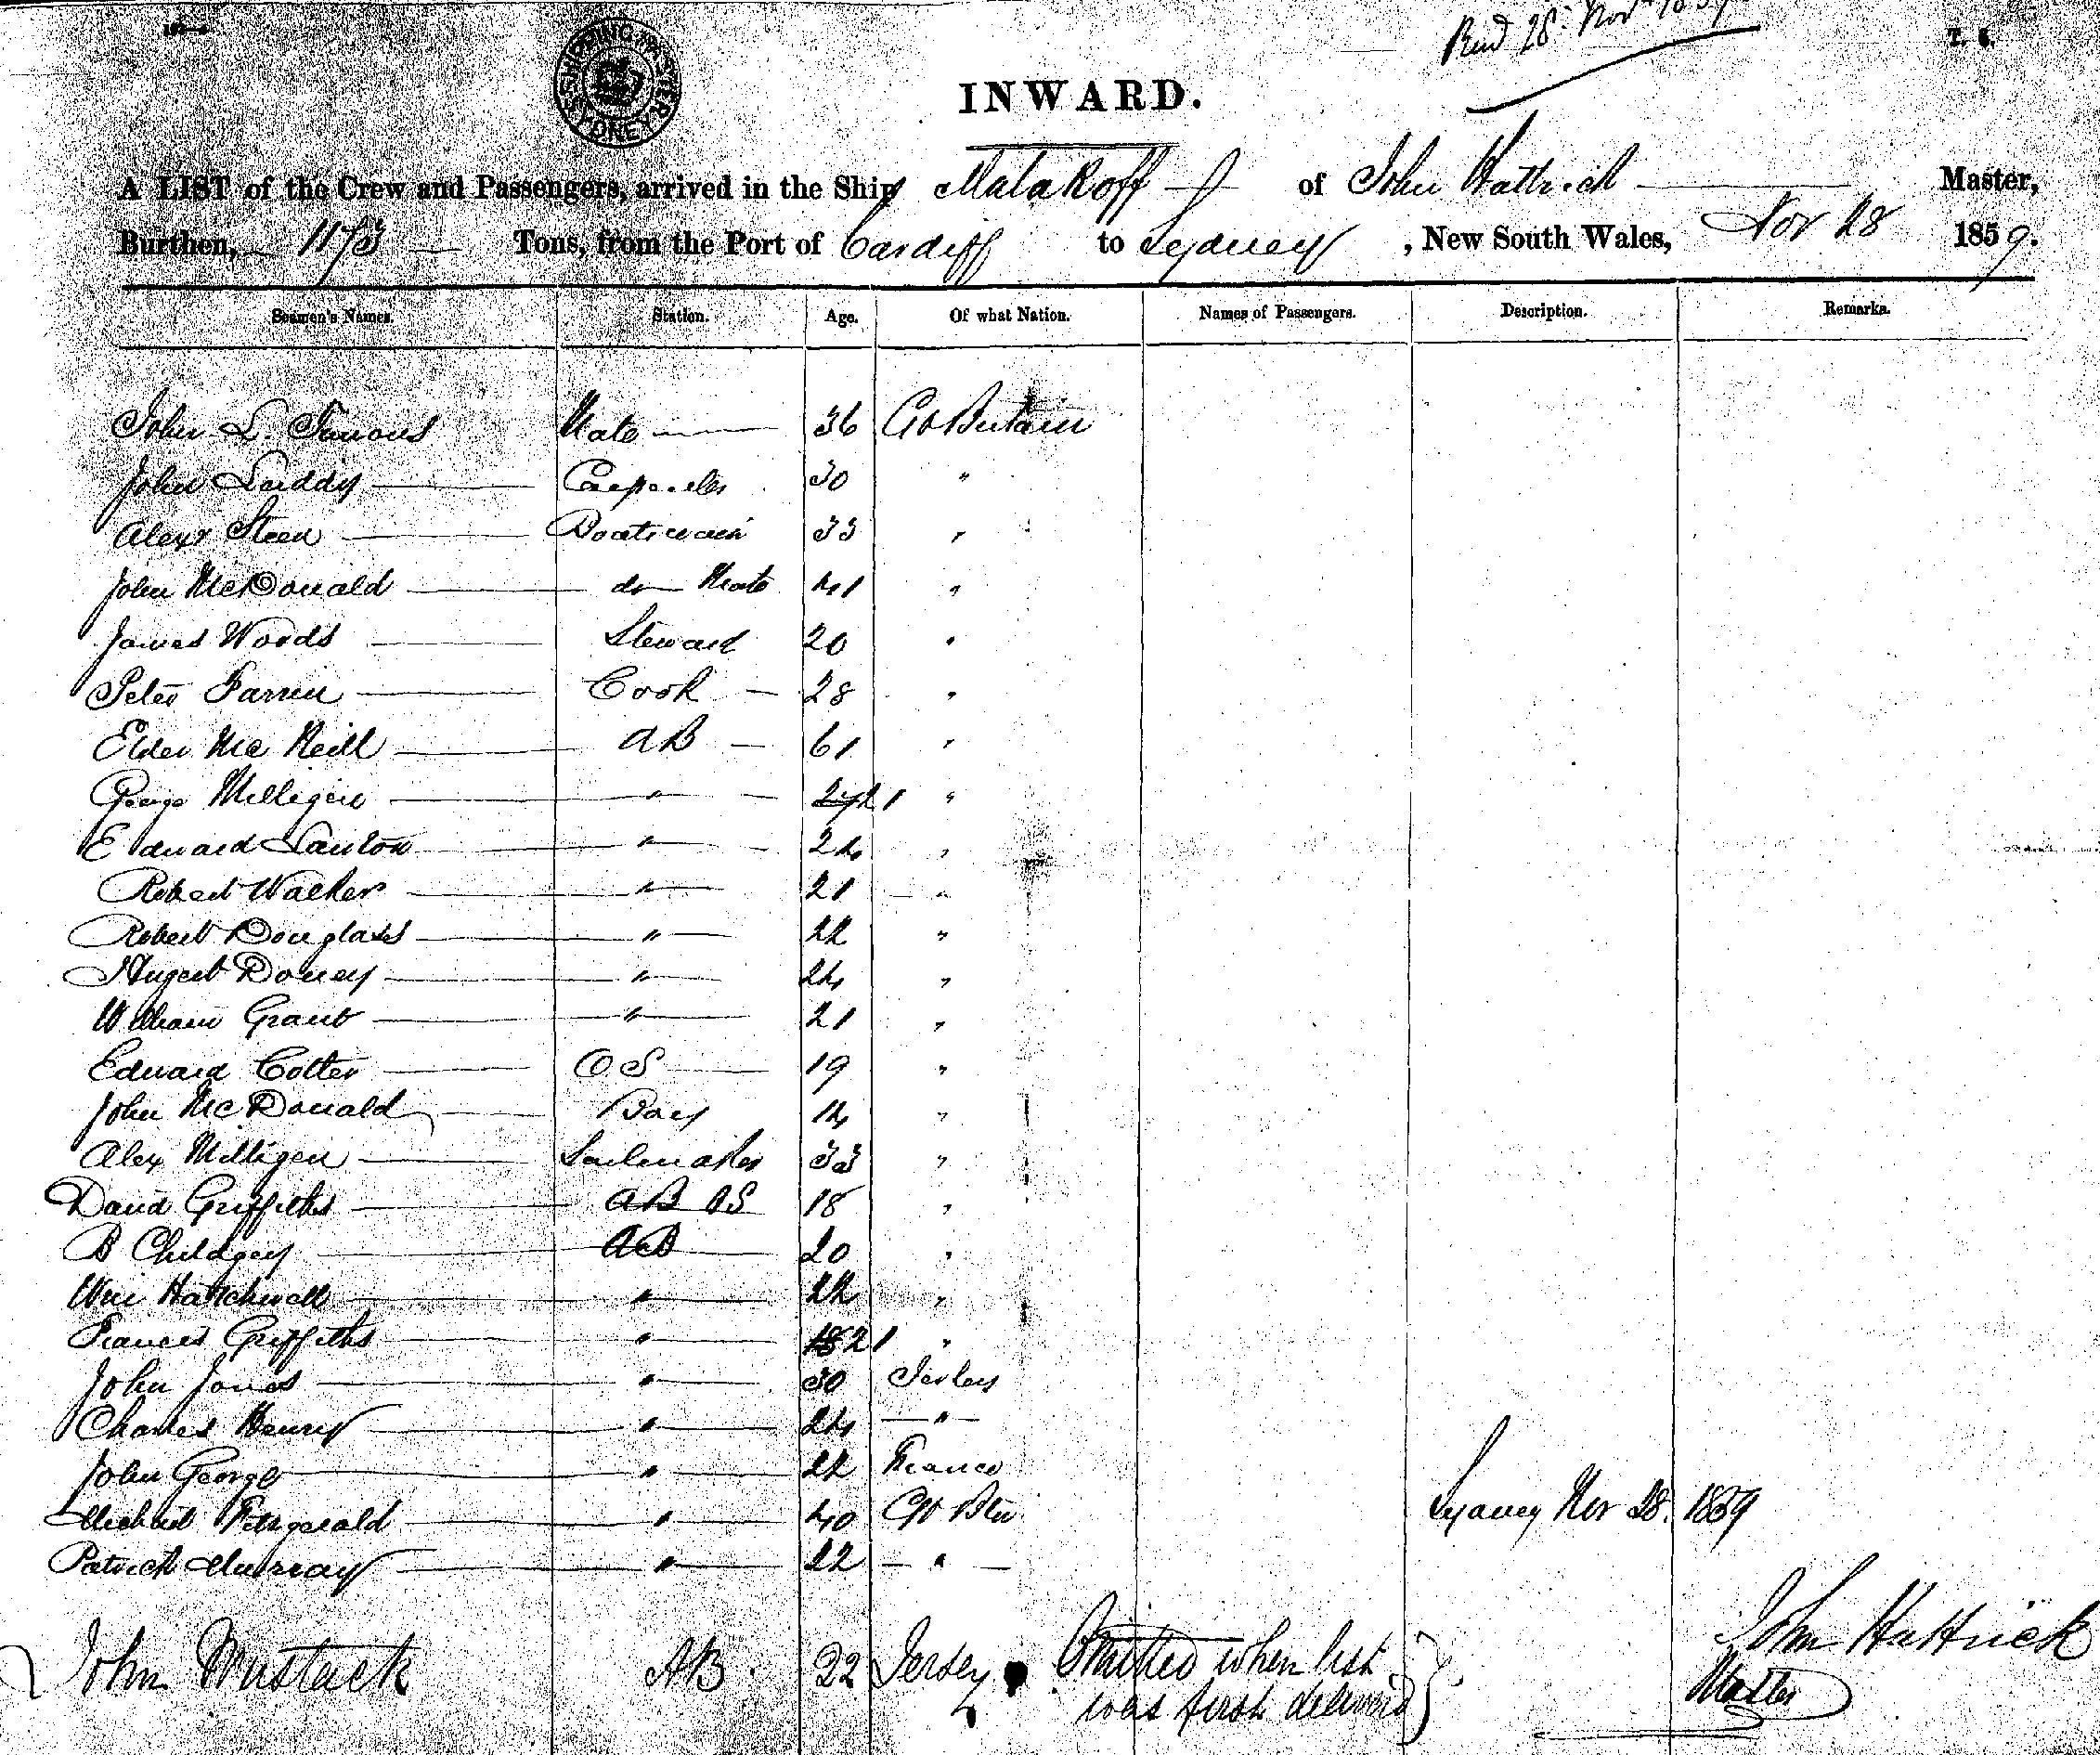 SHIPPING MASTER SYDNEY
Recd 28 Novr 1859
INWARD.
A LIST of the Crew and Passengers, arrived in the Ship Malakoff of John Hattrick Master,
Burthen, 1173 Tons, from the Port of Cardiff to Sydney, New South Wales, Nov 28 1859.
Seamen's Names. Station. Age. Of what Nation. Names of Passengers. Description. Remarks.
John L. Mate 36 Gt Britain
John Carpenter 30 "
Alexr Steen Boatswain 33 "
John McDonald do Mate 41 "
James Woods Steward 20 "
Peter Cook 28 "
Elder McNeill AB 61 "
George Milligen " 27 21 "
Edward " 24 "
Robert Walker " 21 "
Robert Douglass " 22 "
Nugent Doney " 24 "
William Grant " 21 "
Edward Cotter OS 19 "
John McDonald Boy 14 "
Alex Milligen Sailmaker 33 "
David Griffiths AB OS 18 "
B Childgey AB 20 "
Wm Hatchwell " 22 "
Frances Griffiths " 18 21 "
John Jones " 30 Jersey
Charles Henry " 24 "
John George " 22 France
Michael Fitzgerald " 40 Gt Btn
Sydney Nov 28. 1859
Patrick Murray " 22 "
John Mustack AB 22 Jersey Omitted when list
was first delivered
John Hattrick
Master